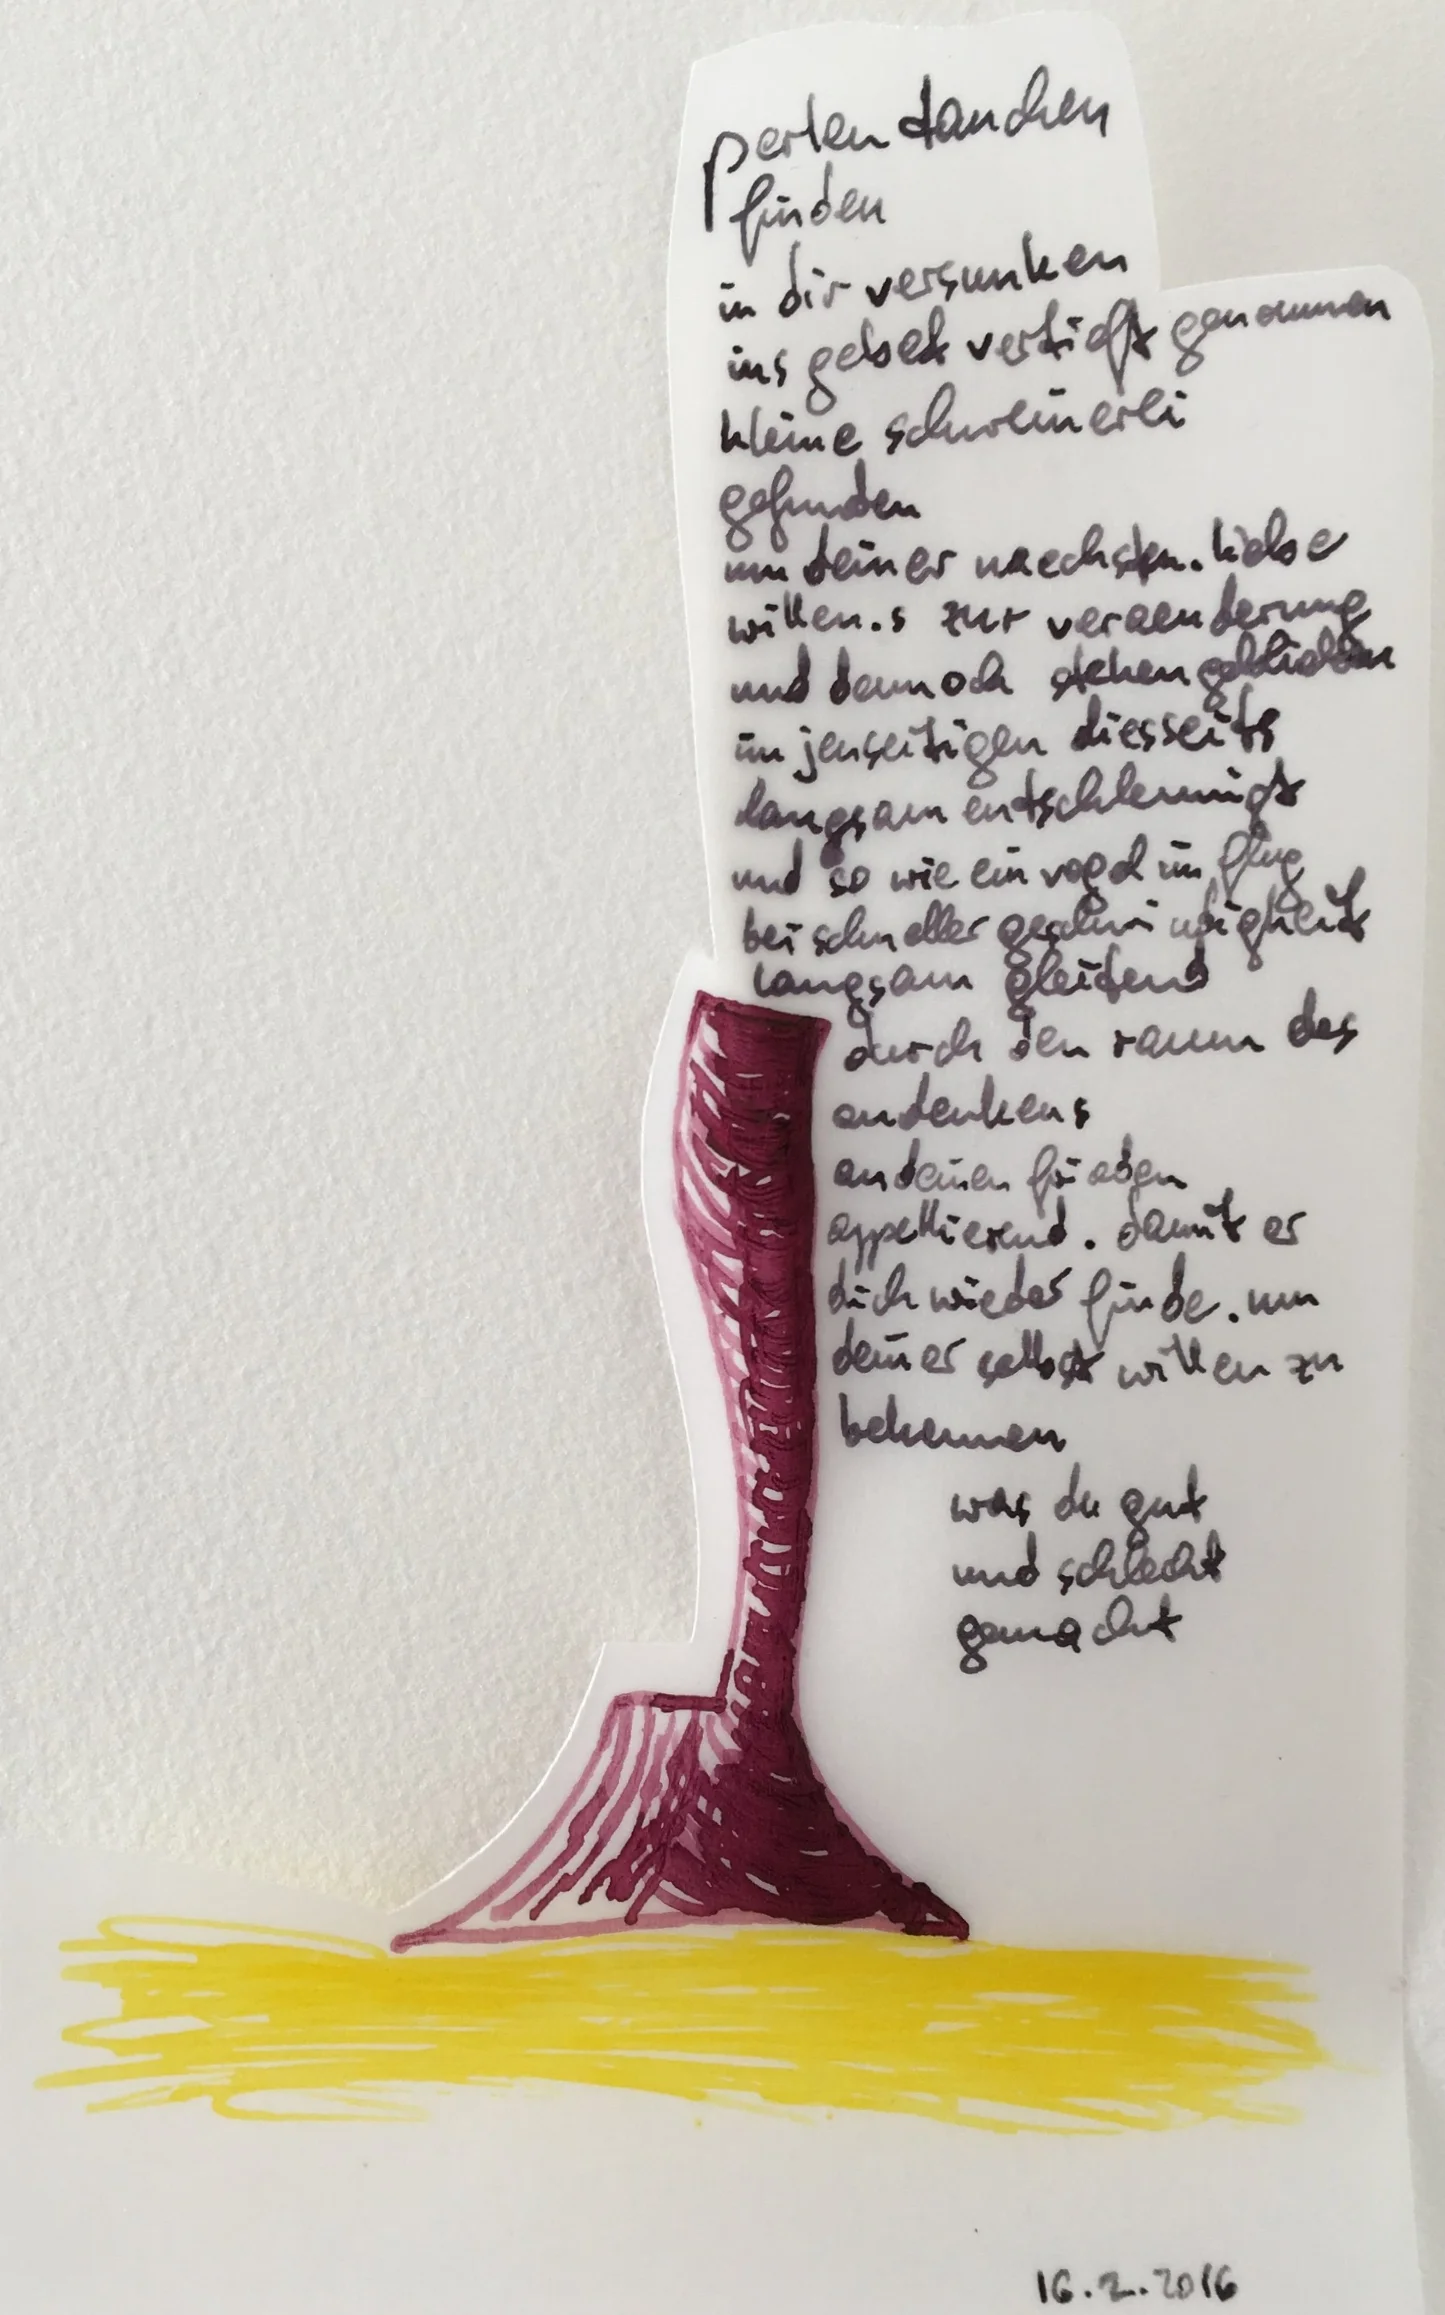 perlen tauchen
finden
in dir versunken
ins gebet vertieft genommen
kleine schweinerei
gefunden
um deiner naechsten.liebe
willen.s zur veraenderung
und dennoch stehen geblieben
im jenseitigen diesseits
langsam entschleunigt
und so wie ein vogel im flug
bei schneller geschwindigkeit
langsam gleitend
durch den raum des
andenkens
an deinen frieden
appellierend. damit er
dich wieder finde. um
deiner selbst willen zu
bekennen
was du gut
und schlecht
gemacht
16.2.2016